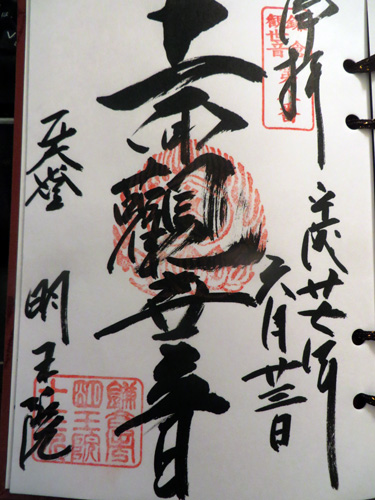 奉拝
平成廿七年
六月廿三日
十一面觀世音
五大堂
明王院
観世音
明王院